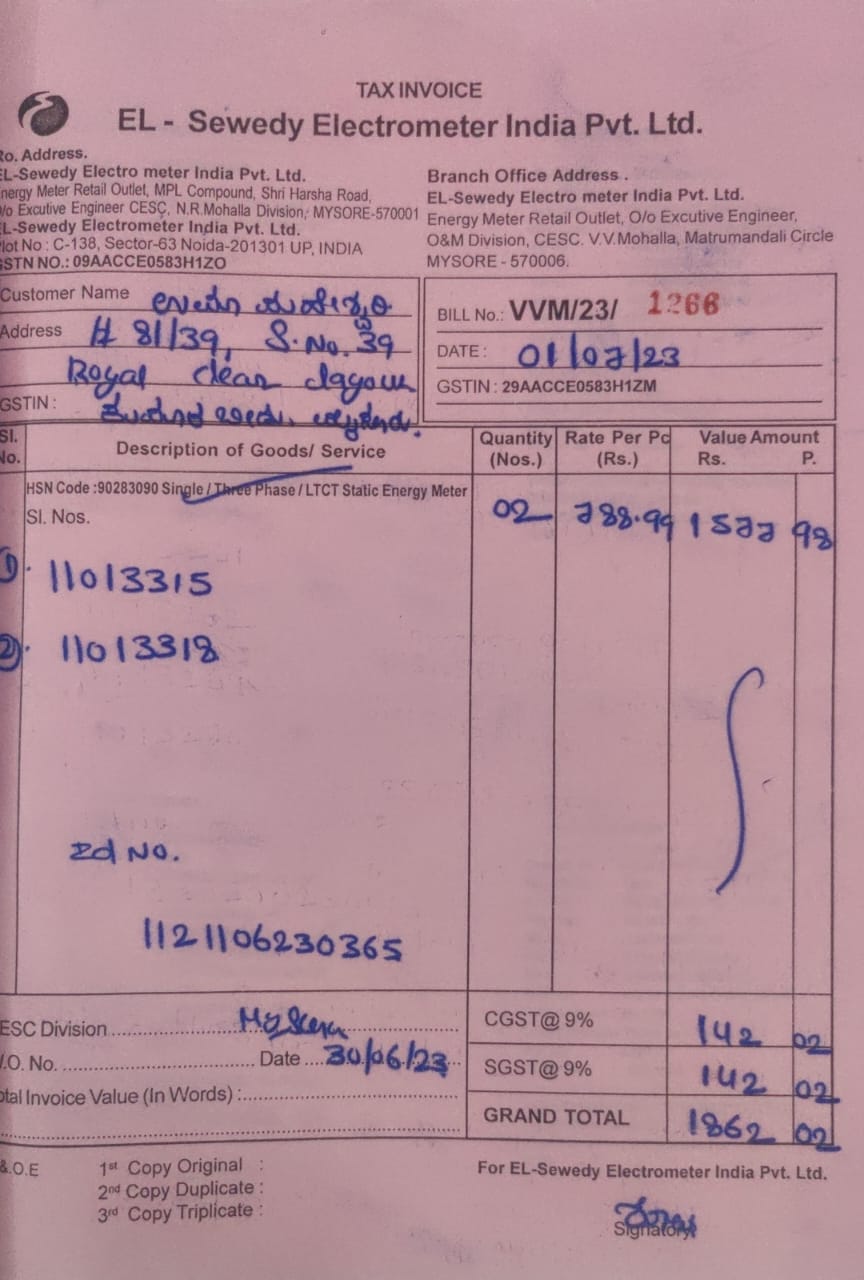 TAX INVOICE
EL - Sewedy Electrometer India Pvt. Ltd.
Ro. Address.
EL-Sewedy Electro meter India Pvt. Ltd.
Energy Meter Retail Outlet, MPL Compound, Shri Harsha Road,
O/o Excutive Engineer CESC, N.R.Mohalla Division, MYSORE-570001
EL-Sewedy Electrometer India Pvt. Ltd.
Plot No : C-138, Sector-63 Noida-201301 UP, INDIA
GSTN NO.: 09AACCE0583H1ZO
Branch Office Address .
EL-Sewedy Electro meter India Pvt. Ltd.
Energy Meter Retail Outlet, O/o Excutive Engineer,
O&M Division, CESC. V.V.Mohalla, Matrumandali Circle
MYSORE - 570006.
Customer Name
Address # 81/39, S.No. 39
Royal
GSTIN :
BILL No.: VVM/23/ 1266
DATE : 01/07/23
GSTIN : 29AACCE0583H1ZM
Sl. No. Description of Goods/ Service Quantity (Nos.) Rate Per Pc (Rs.) Value Amount Rs. P.
HSN Code :90283090 Single / Three Phase / LTCT Static Energy Meter
Sl. Nos. 02 788.99 1577 98
1). 11013315
2). 11013318
No.
1121106230365
ESC Division
CGST@ 9% 142 02
.O. No. Date 30/06/23
SGST@ 9% 142 02
otal Invoice Value (In Words) :
GRAND TOTAL 1862 02
&.O.E
1st Copy Original :
2nd Copy Duplicate :
3rd Copy Triplicate :
For EL-Sewedy Electrometer India Pvt. Ltd.
Signatory